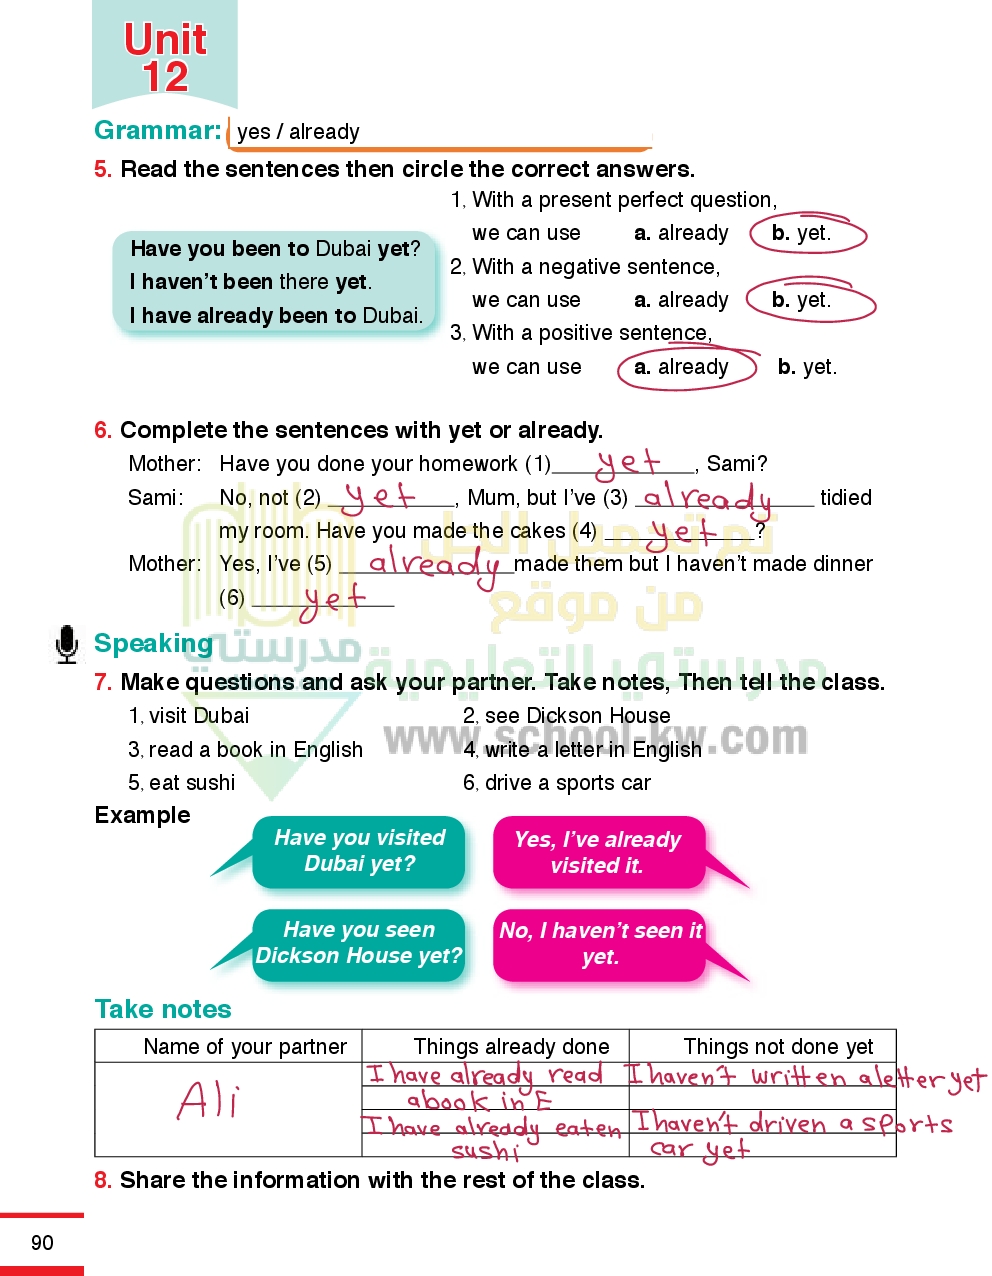 Unit
12
Grammar: yes / already
5. Read the sentences then circle the correct answers.
Have you been to Dubai yet?
I haven't been there yet.
I have already been to Dubai.
1, With a present perfect question,
we can use a. already b. yet.
2, With a negative sentence,
we can use a. already b. yet.
3, With a positive sentence,
we can use a. already b. yet.
6. Complete the sentences with yet or already.
Mother: Have you done your homework (1) yet, Sami?
Sami: No, not (2) yet, Mum, but I've (3) already tidied
my room. Have you made the cakes (4) yet?
Mother: Yes, I've (5) already made them but I haven't made dinner
(6) yet
تم تحميل الحل
من موقع
مدرستي التعليمية
مدرستي
www.school-kw.com
Speaking
7. Make questions and ask your partner. Take notes, Then tell the class.
1, visit Dubai 2, see Dickson House
3, read a book in English 4, write a letter in English
5, eat sushi 6, drive a sports car
Example
Have you visited
Dubai yet?
Yes, I've already
visited it.
Have you seen
Dickson House yet?
No, I haven't seen it
yet.
Take notes
Name of your partner Things already done Things not done yet
Ali
I have already read
abook in E
I have already eaten
sushi
I haven't written aletter yet
I haven't driven a sports
car yet
8. Share the information with the rest of the class.
90